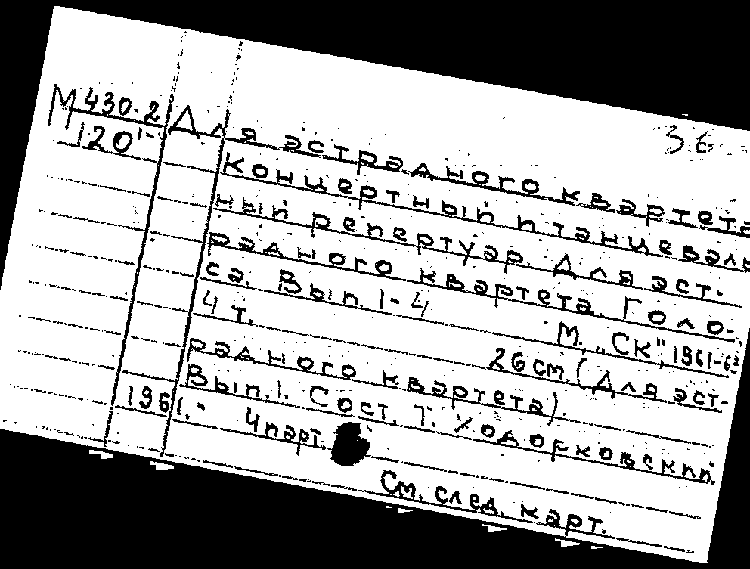 М 430-2
120
36
Для эстрадного квартета
Концертный и танцеваль
ный репертуар. Для эст-
радного квартета. Голо-
са. Вып. 1-4 М. „СК", 1961-63
4 т. 26 см. (Для эст-
радного квартета).
Вып. 1. Сост. Т. Ходорковский.
1961.- 4 парт.
См. след. карт.